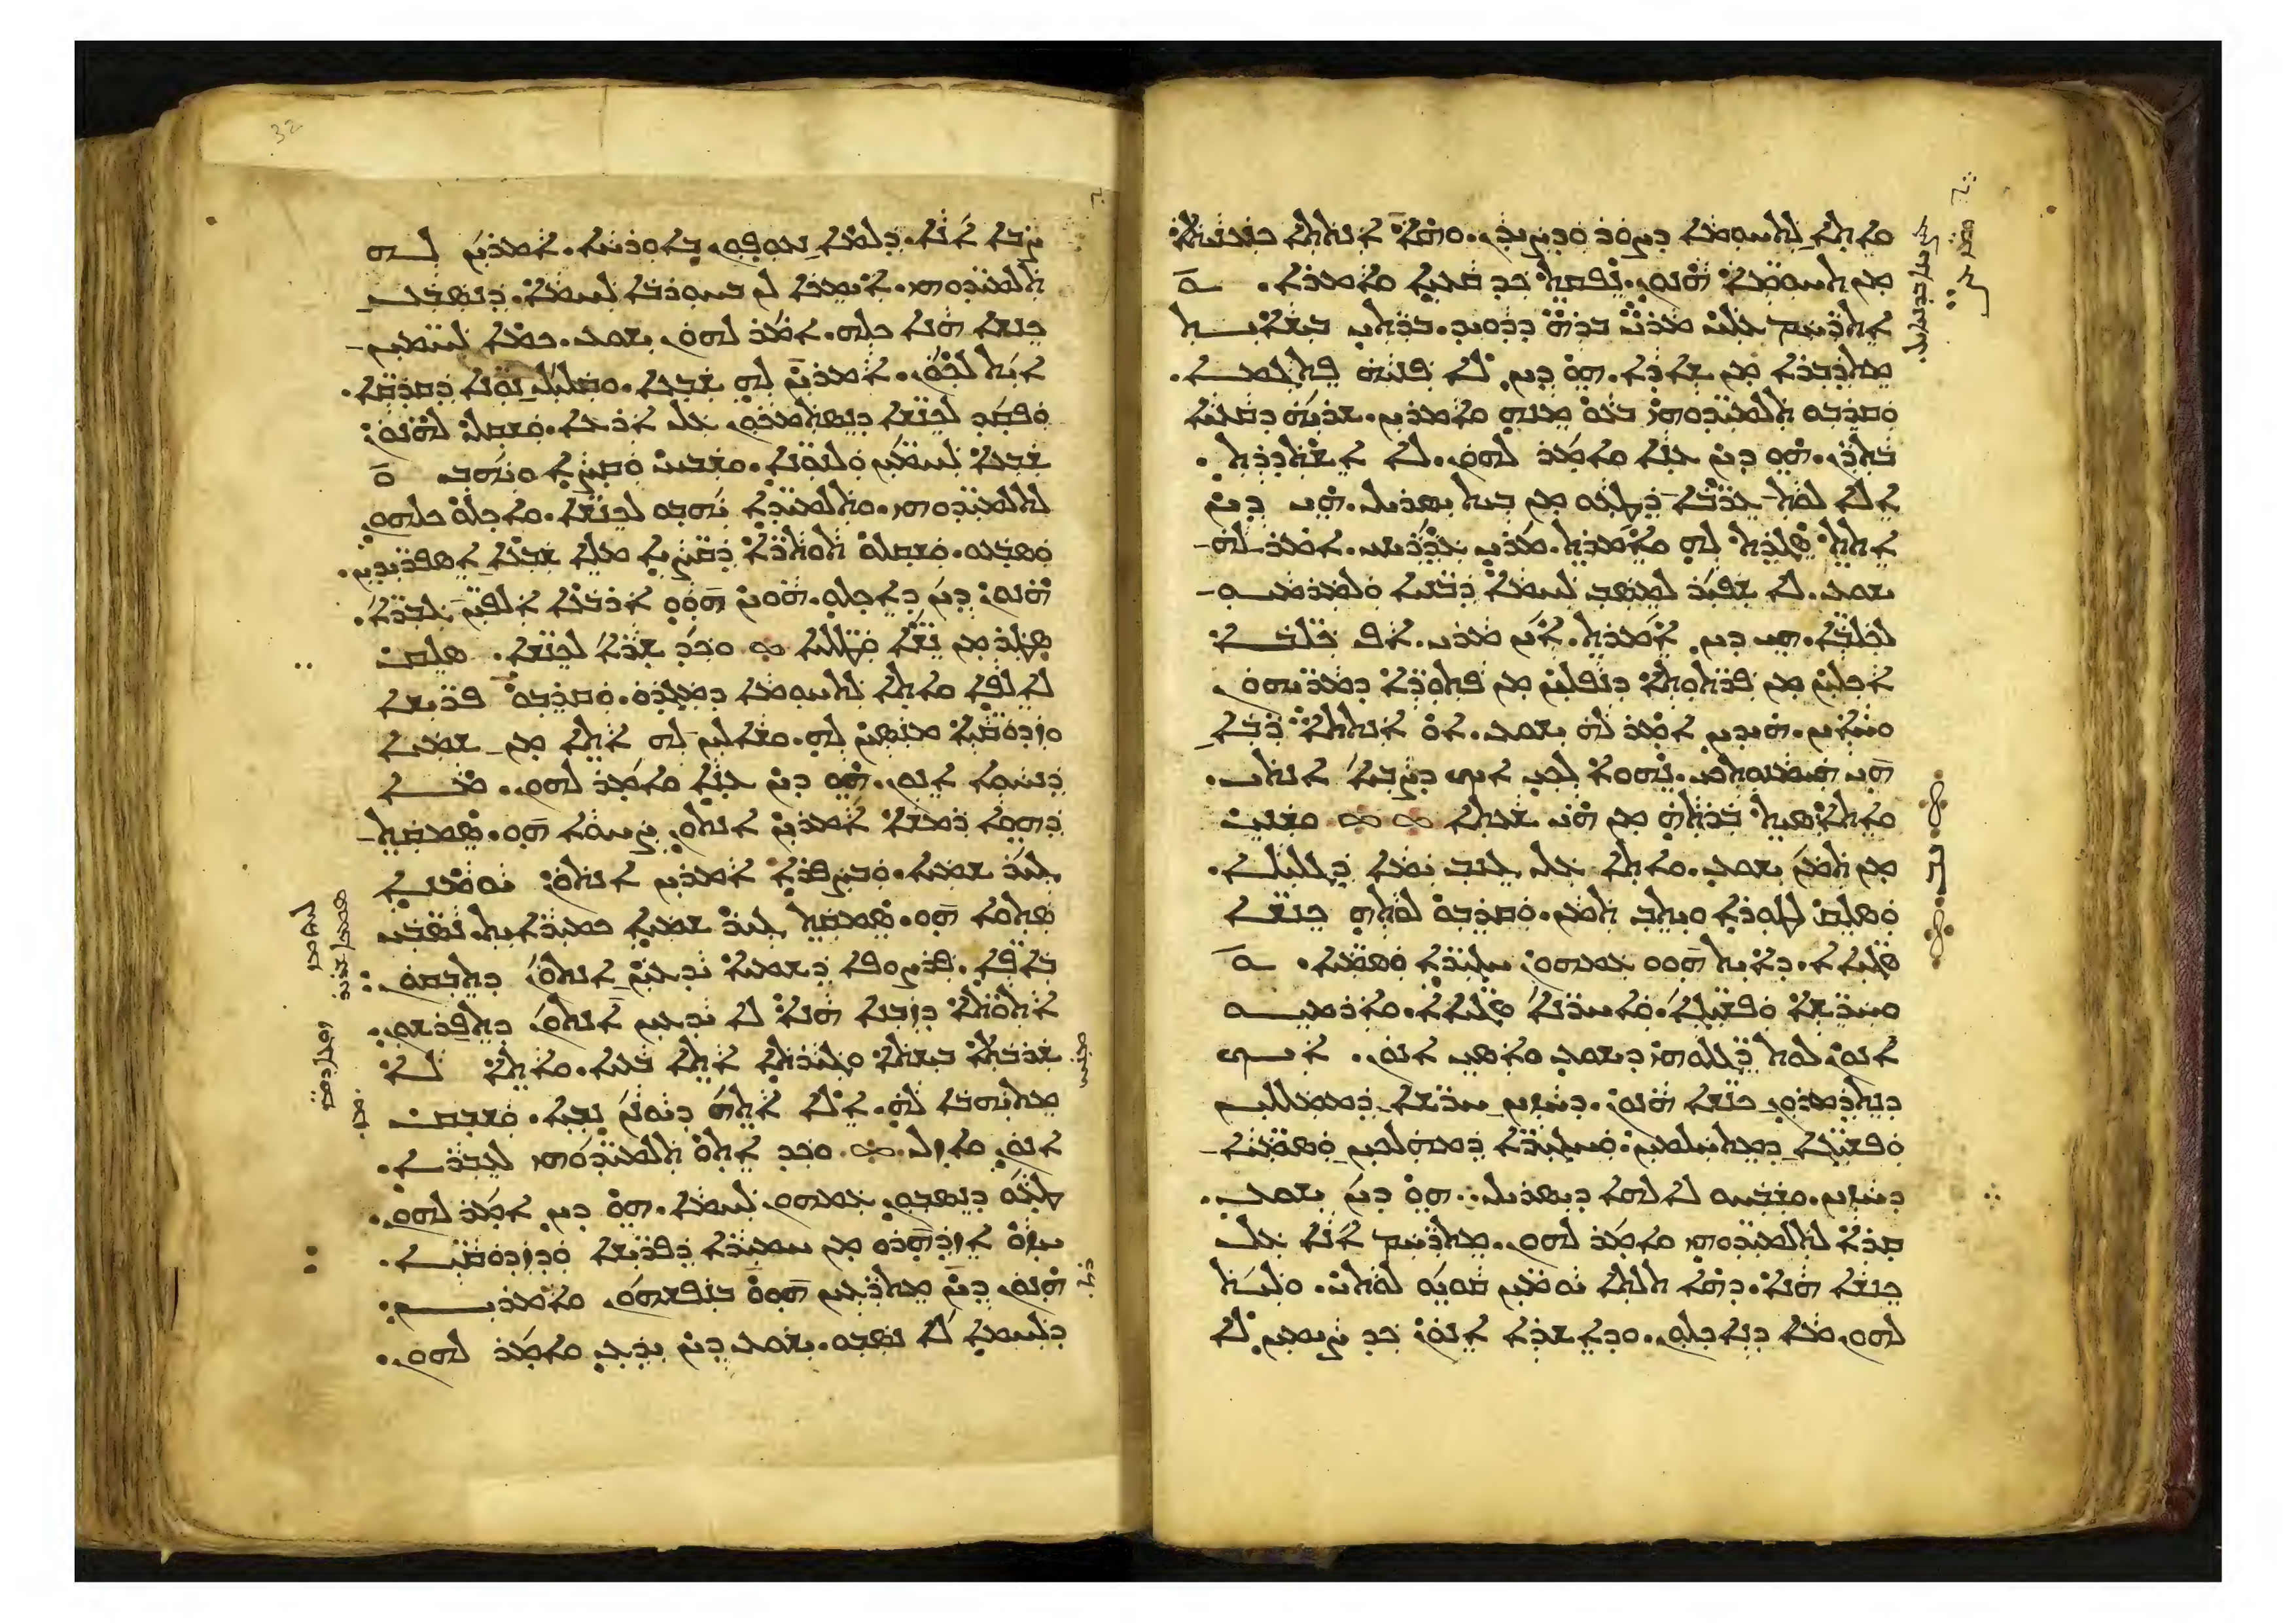 ܘܐܬܐ ܠܬܚܘܡܐ ܕܨܘܪ ܘܕܨܝܕܢ. ܘܗܐ ܐܢܬܬܐ ܟܢܥܢܝܬܐ
ܡܢ ܬܚܘܡܐ ܗܢܘܢ. ܢܦܩܬ ܟܕ ܩܥܝܐ ܘܐܡܪܐ.
ܐܬܪܚܡ ܥܠܝ ܡܪܝ ܒܪܗ ܕܕܘܝܕ. ܒܪܬܝ ܒܝܫܐܝܬ
ܡܬܕܒܪܐ ܡܢ ܫܐܕܐ. ܗܘ ܕܝܢ ܠܐ ܦܢܝܗ ܦܬܓܡܐ.
ܘܩܪܒܘ ܬܠܡܝܕܘܗܝ ܒܥܘ ܡܢܗ ܘܐܡܪܝܢ. ܫܪܝܗ ܕܩܥܝܐ
ܒܬܪܢ. ܗܘ ܕܝܢ ܥܢܐ ܘܐܡܪ ܠܗܘܢ. ܠܐ ܐܫܬܕܪܬ.
ܐܠܐ ܠܘܬ ܥܪܒܐ ܕܛܥܘ ܡܢ ܒܝܬ ܝܣܪܝܠ. ܗܝ ܕܝܢ
ܐܬܬ ܣܓܕܬ ܠܗ ܘܐܡܪܬ. ܡܪܝ ܥܕܪܝܢܝ. ܐܡܪ ܠܗ
ܝܫܘܥ. ܠܐ ܫܦܝܪ ܠܡܣܒ ܠܚܡܐ ܕܒܢܝܐ ܘܠܡܪܡܝܘ
ܠܟܠܒܐ. ܗܝ ܕܝܢ ܐܡܪܬ. ܐܝܢ ܡܪܝ. ܐܦ ܟܠܒܐ
ܐܟܠܝܢ ܡܢ ܦܪܬܘܬܐ ܕܢܦܠܝܢ ܡܢ ܦܬܘܪܐ ܕܡܪܝܗܘܢ
ܘܚܐܝܢ. ܗܝܕܝܢ ܐܡܪ ܠܗ ܝܫܘܥ. ܐܘ ܐܢܬܬܐ ܪܒܐ
ܗܝ ܗܝܡܢܘܬܟܝ. ܢܗܘܐ ܠܟܝ ܐܝܟ ܕܨܒܝܐ ܐܢܬܝ.
ܘܐܬܐܣܝܬ ܒܪܬܗ ܡܢ ܗܝ ܫܥܬܐ ܘܫܢܝ
ܡܢ ܬܡܢ ܝܫܘܥ. ܘܐܬܐ ܥܠ ܓܢܒ ܝܡܐ ܕܓܠܝܠܐ.
ܘܣܠܩ ܠܛܘܪܐ ܘܝܬܒ ܬܡܢ. ܘܩܪܒܘ ܠܘܬܗ ܟܢܫܐ
ܣܓܝܐܐ. ܕܐܝܬ ܗܘܘ ܥܡܗܘܢ ܚܓܝܪܐ ܘܣܡܝܐ.
ܘܚܪܫܐ ܘܦܫܝܓܐ. ܘܐܚܪܢܐ ܣܓܝܐܐ. ܘܐܪܡܝܘ
ܐܢܘܢ ܠܘܬ ܪܓܠܘܗܝ ܕܝܫܘܥ ܘܐܣܝ ܐܢܘܢ. ܐܝܟ
ܕܢܬܕܡܪܘܢ ܟܢܫܐ ܗܢܘܢ. ܕܚܙܝܢ ܚܪܫܐ ܕܡܡܠܠܝܢ
ܘܦܫܝܓܐ ܕܡܬܚܠܡܝܢ. ܘܚܓܝܪܐ ܕܡܗܠܟܝܢ ܘܣܡܝܐ
ܕܚܙܝܢ. ܘܫܒܚܘ ܠܐܠܗܐ ܕܝܣܪܝܠ. ܗܘ ܕܝܢ ܝܫܘܥ.
ܩܪܐ ܠܬܠܡܝܕܘܗܝ ܘܐܡܪ ܠܗܘܢ. ܡܬܪܚܡ ܐܢܐ ܥܠ
ܟܢܫܐ ܗܢܐ. ܕܗܐ ܬܠܬܐ ܝܘܡܝܢ ܩܘܝܘ ܠܘܬܝ. ܘܠܝܬ
ܠܗܘܢ ܡܢܐ ܕܢܐܟܠܘܢ. ܘܕܐܫܪܐ ܐܢܘܢ ܟܕ ܨܝܡܝܢ ܠܐ
ܨܒܐ ܐܢܐ. ܕܠܡܐ ܢܥܘܦܘܢ ܒܐܘܪܚܐ. ܐܡܪܝܢ ܠܗ
ܬܠܡܝܕܘܗܝ. ܐܝܡܟܐ ܠܢ ܒܚܘܪܒܐ ܠܚܡܐ. ܕܢܣܒܥ
ܟܢܫܐ ܗܢܐ ܟܠܗ. ܐܡܪ ܠܗܘܢ ܝܫܘܥ. ܟܡܐ ܠܚܡܝܢ
ܐܝܬ ܠܟܘܢ. ܐܡܪܝܢ ܠܗ ܫܒܥܐ. ܘܩܠܝܠ ܢܘܢܐ ܕܩܕܩܐ.
ܘܦܩܕ ܠܟܢܫܐ ܕܢܣܬܡܟܘܢ ܥܠ ܐܪܥܐ. ܘܫܩܠ ܠܗܢܘܢ
ܫܒܥܐ ܠܚܡܝܢ ܘܠܢܘܢܐ. ܘܫܒܚ ܘܩܨܐ ܘܝܗܒ
ܠܬܠܡܝܕܘܗܝ. ܘܬܠܡܝܕܐ ܝܗܒܘ ܠܟܢܫܐ. ܘܐܟܠܘ ܟܠܗܘܢ
ܘܣܒܥܘ. ܘܫܩܠܘ ܬܘܬܪܐ ܕܩܨܝܐ ܡܠܐ ܫܒܥܐ ܐܣܦܪܝܕܝܢ.
ܗܢܘܢ ܕܝܢ ܕܐܟܠܘ. ܗܘܝܢ ܗܘܘ ܐܪܒܥܐ ܐܠܦܝܢ ܓܒܪܐ.
ܣܛܪ ܡܢ ܢܫܐ ܘܛܠܝܐ ܘܟܕ ܫܪܐ ܠܟܢܫܐ. ܣܠܩ
ܠܐܠܦܐ ܘܐܬܐ ܠܬܚܘܡܐ ܕܡܓܕܘ. ܘܩܪܒܘ ܦܪܝܫܐ
ܘܙܕܘܩܝܐ ܡܢܣܝܢ ܠܗ. ܘܫܐܠܝܢ ܠܗ ܐܬܐ ܡܢ ܫܡܝܐ
ܕܢܚܘܐ ܐܢܘܢ. ܗܘ ܕܝܢ ܥܢܐ ܘܐܡܪ ܠܗܘܢ. ܡܐ
ܕܗܘܐ ܪܡܫܐ ܐܡܪܝܢ ܐܢܬܘܢ ܨܚܘܐ ܗܘ. ܣܡܩܬ
ܓܝܪ ܫܡܝܐ. ܘܒܨܦܪܐ ܐܡܪܝܢ ܐܢܬܘܢ ܝܘܡܢܐ
ܣܬܘܐ ܗܘ. ܣܡܩܬ ܓܝܪ ܫܡܝܐ ܟܡܝܪܐܝܬ. ܢܣܒܝ
ܒܐܦܐ. ܦܪܨܘܦܐ ܕܫܡܝܐ ܝܕܥܝܢ ܐܢܬܘܢ ܕܬܒܩܘܢ.
ܐܬܘܬܐ ܕܙܒܢܐ ܗܢܐ ܠܐ ܝܕܥܝܢ ܐܢܬܘܢ ܕܬܦܪܫܘܢ.
ܫܪܒܬܐ ܒܝܫܬܐ ܘܓܝܪܬܐ ܐܬܐ ܒܥܝܐ. ܘܐܬܐ ܠܐ
ܡܬܝܗܒܐ ܠܗ. ܐܠܐ ܐܬܗ ܕܝܘܢܢ ܢܒܝܐ. ܘܫܒܩ
ܐܢܘܢ ܘܐܙܠ ܘܟܕ ܐܬܘ ܬܠܡܝܕܘܗܝ ܠܥܒܪܐ.
ܛܥܘ ܕܢܣܒܘܢ ܥܡܗܘܢ ܠܚܡܐ. ܗܘ ܕܝܢ ܐܡܪ ܠܗܘܢ.
ܚܙܘ ܐܙܕܗܪܘ ܡܢ ܚܡܝܪܐ ܕܦܪܝܫܐ ܘܕܙܕܘܩܝܐ.
ܗܢܘܢ ܕܝܢ ܡܬܪܥܝܢ ܗܘܘ ܒܢܦܫܗܘܢ ܘܐܡܪܝܢ.
ܕܠܚܡܐ ܠܐ ܢܣܒܘ. ܝܫܘܥ ܕܝܢ ܝܕܥ ܘܐܡܪ ܠܗܘܢ.
32